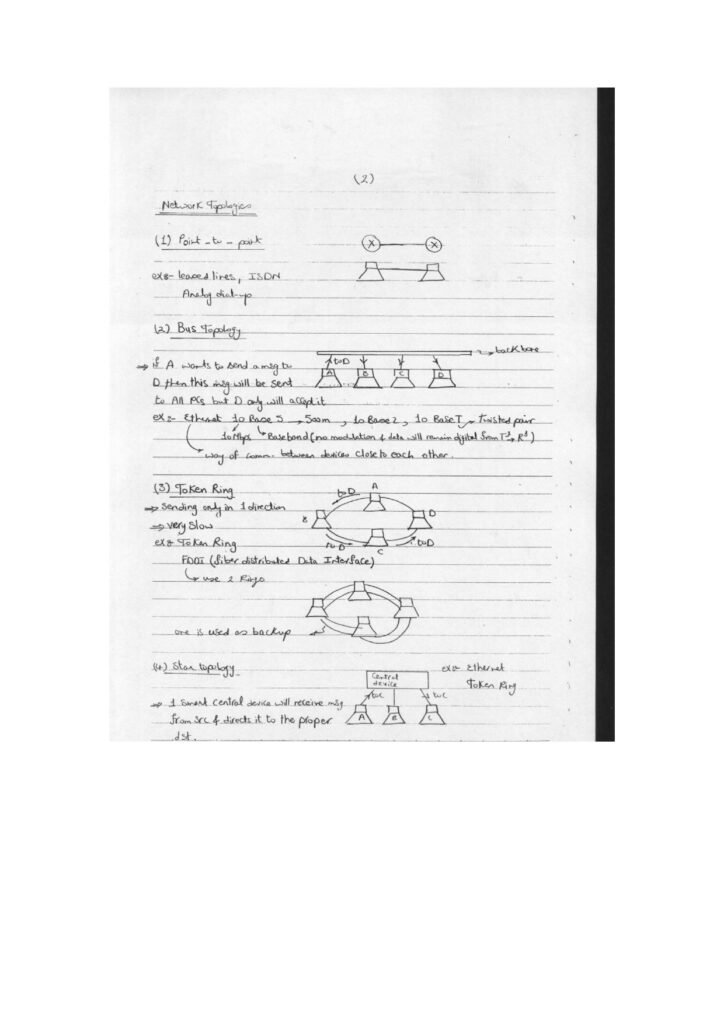 (2)
Network Topologies
(1) Point-to-point
X X
ex:- leased lines, ISDN
Analog dial-up
(2) Bus Topology
→ backbone
⇒ if A wants to send a msg to
toD
D then this msg will be sent
A B C D
to All PCs but D only will accept it
ex:- Ethernet 10 Base 5 → 500m, 10 Base 2, 10 Base T → twisted pair
10 Mbps Baseband (no modulation & data will remain digital from T
way of comm. between devices close to each other.
(3) Token Ring
A
⇒ sending only in 1 direction
toD
B D
⇒ very slow
ex:- Token Ring
toD C toD
FDDI (fiber distributed Data Interface)
use 2 Rings
one is used as backup
(4) Star topology
ex:- Ethernet
Central
device
Token Ring
toC toC
⇒ 1 smart central device will receive msg
from src & directs it to the proper
A B C
dst.